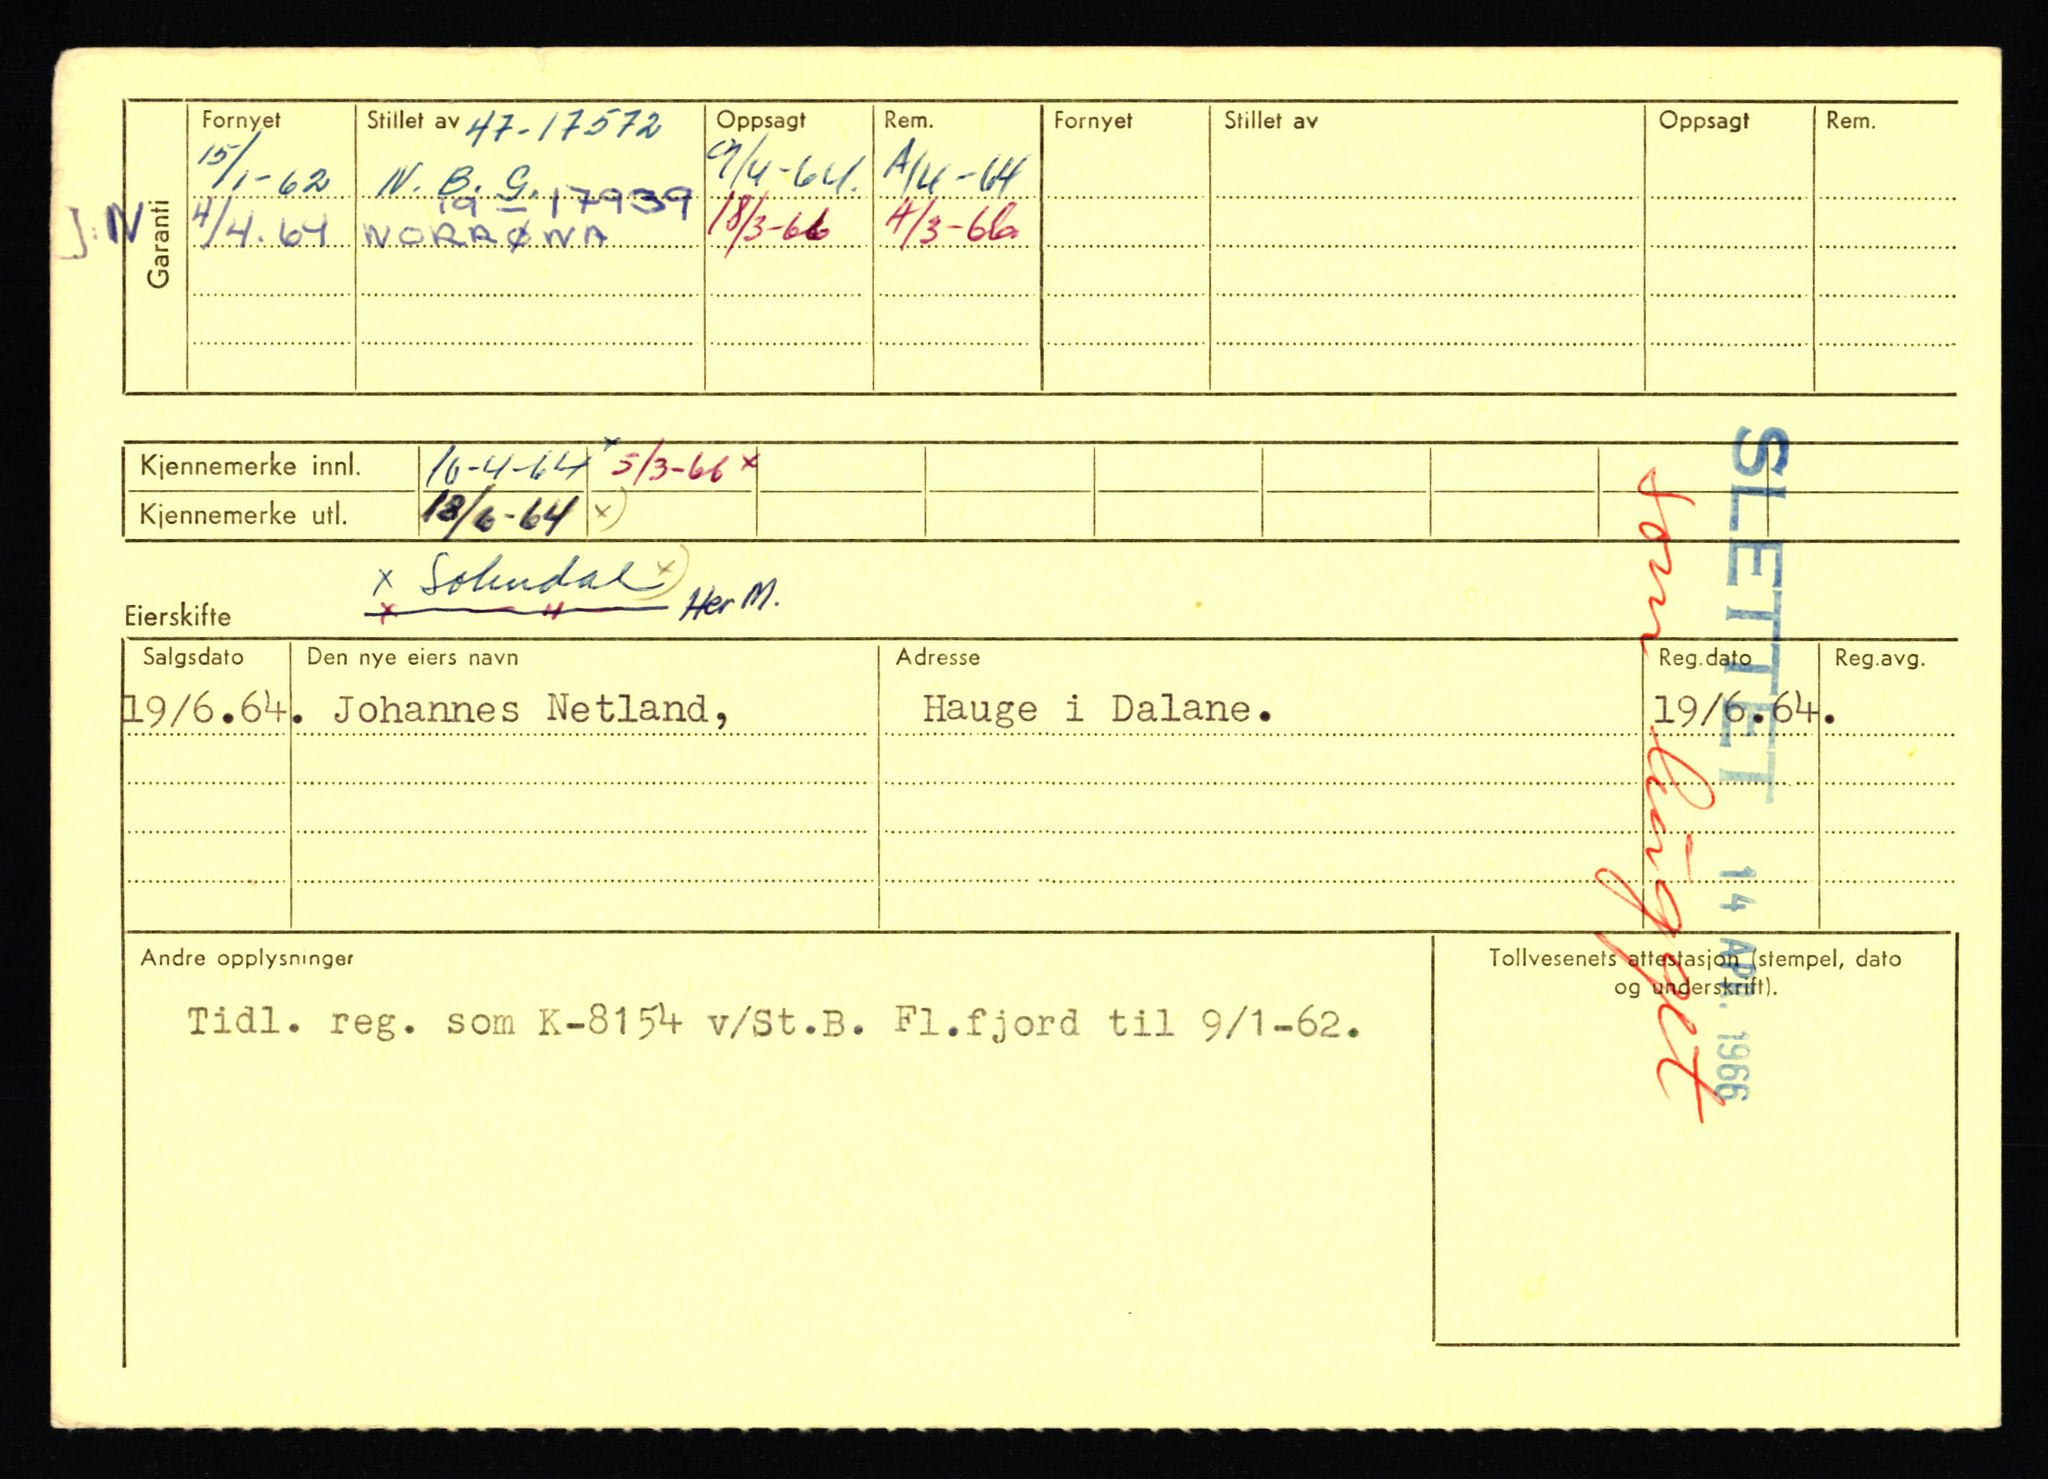 Garanti
Fornyet Stillet av 47-17572 Oppsagt Rem. Fornyet Stillet av Oppsagt Rem.
15/1-62 N. B. G. 9/4-64. A/4-64
19-17939
J.N 4/4.64 NORRØNA 18/3-66 A/3-66
Kjennemerke innl. 10-4-64 x 5/3-66 x
Kjennemerke utl. 18/6-64 x)
x Sokndal x)
Eierskifte x " Her M.
Salgsdato Den nye eiers navn Adresse Reg.dato Reg.avg.
19/6.64. Johannes Netland, Hauge i Dalane. 19/6.64.
Andre opplysninger
Tidl. reg. som K-8154 v/St.B. Fl.fjord til 9/1-62.
Tollvesenets attestasjon (stempel, dato
og underskrift).
SLETTET 14 APR. 1966